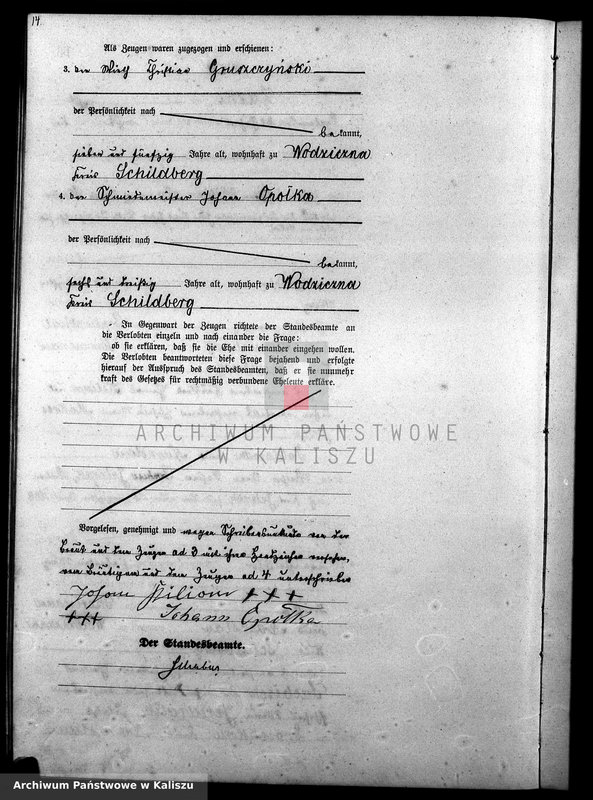 14.
Als Zeugen waren zugezogen und erschienen:
3. der Wirth Christian Gruszczyński
der Persönlichkeit nach
bekannt,
sieben und fünfzig Jahre alt, wohnhaft zu Wodziczna
Kreis Schildberg
4. der Schmiedemeister Johann Opolka
der Persönlichkeit nach
bekannt,
sechs und dreißig Jahre alt, wohnhaft zu Wodziczna
Kreis Schildberg
In Gegenwart der Zeugen richtete der Standesbeamte an
die Verlobten einzeln und nach einander die Frage:
ob sie erklären, daß sie die Ehe mit einander eingehen wollen.
Die Verlobten beantworteten diese Frage bejahend und erfolgte
hierauf der Ausspruch des Standesbeamten, daß er sie nunmehr
kraft des Gesetzes für rechtmäßig verbundene Eheleute erkläre.
ARCHIWUM PAŃSTWOWE
W KALISZU
Vorgelesen, genehmigt und wegen Schreibensunkunde von der
Braut und dem Zeugen ad 3 mit ihren Handzeichen versehen,
vom Bräutigam und dem Zeugen ad 4 unterschrieben
Johann +++
+++ Johann Opolka
Der Standesbeamte.
Archiwum Państwowe w Kaliszu